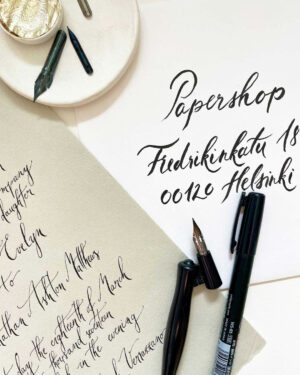 Papershop
Fredrikinkatu 18
00120 Helsinki
company
daughter
Evelyn
to
Ashton Matthews
day the eighteenth of March
thousand
in the evening